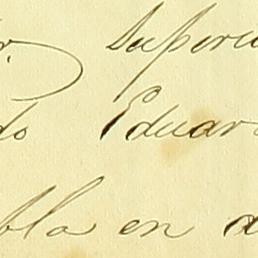 r. Superi
do Eduar
bla en a